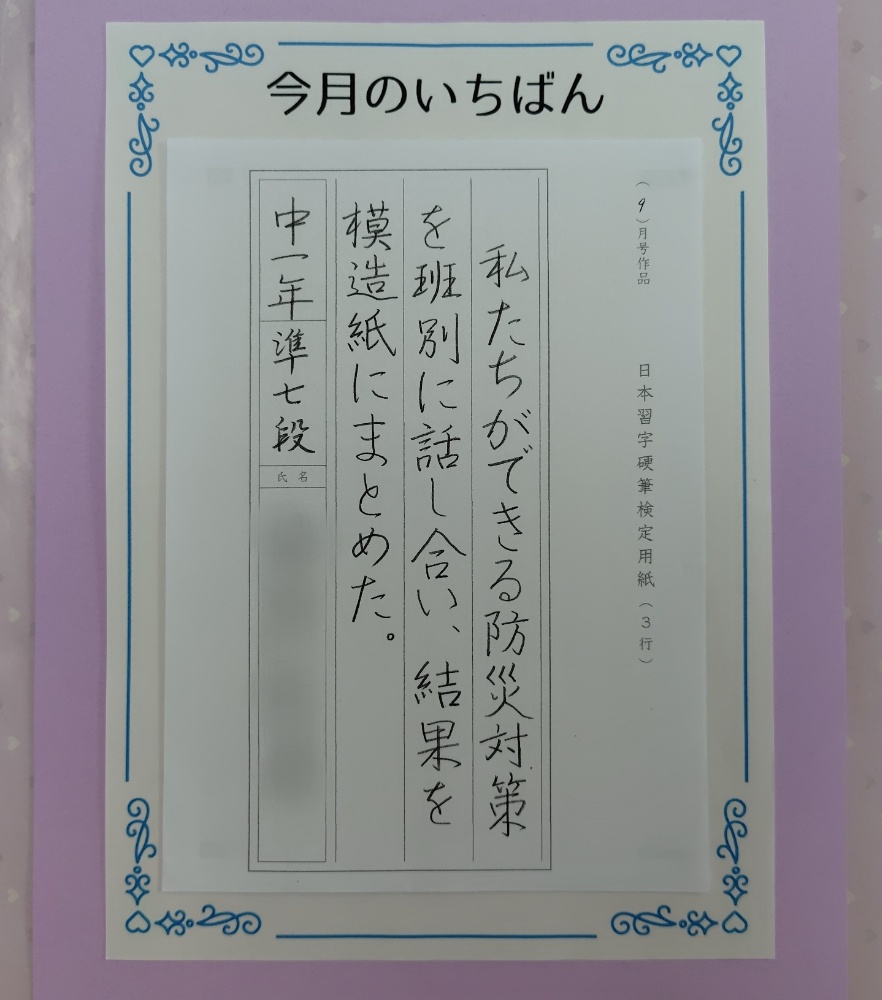 今月のいちばん
（9）月号作品　日本習字硬筆検定用紙（3行）
私たちができる防災対策
を班別に話し合い、結果を
模造紙にまとめた。
中一年 準七段
氏名